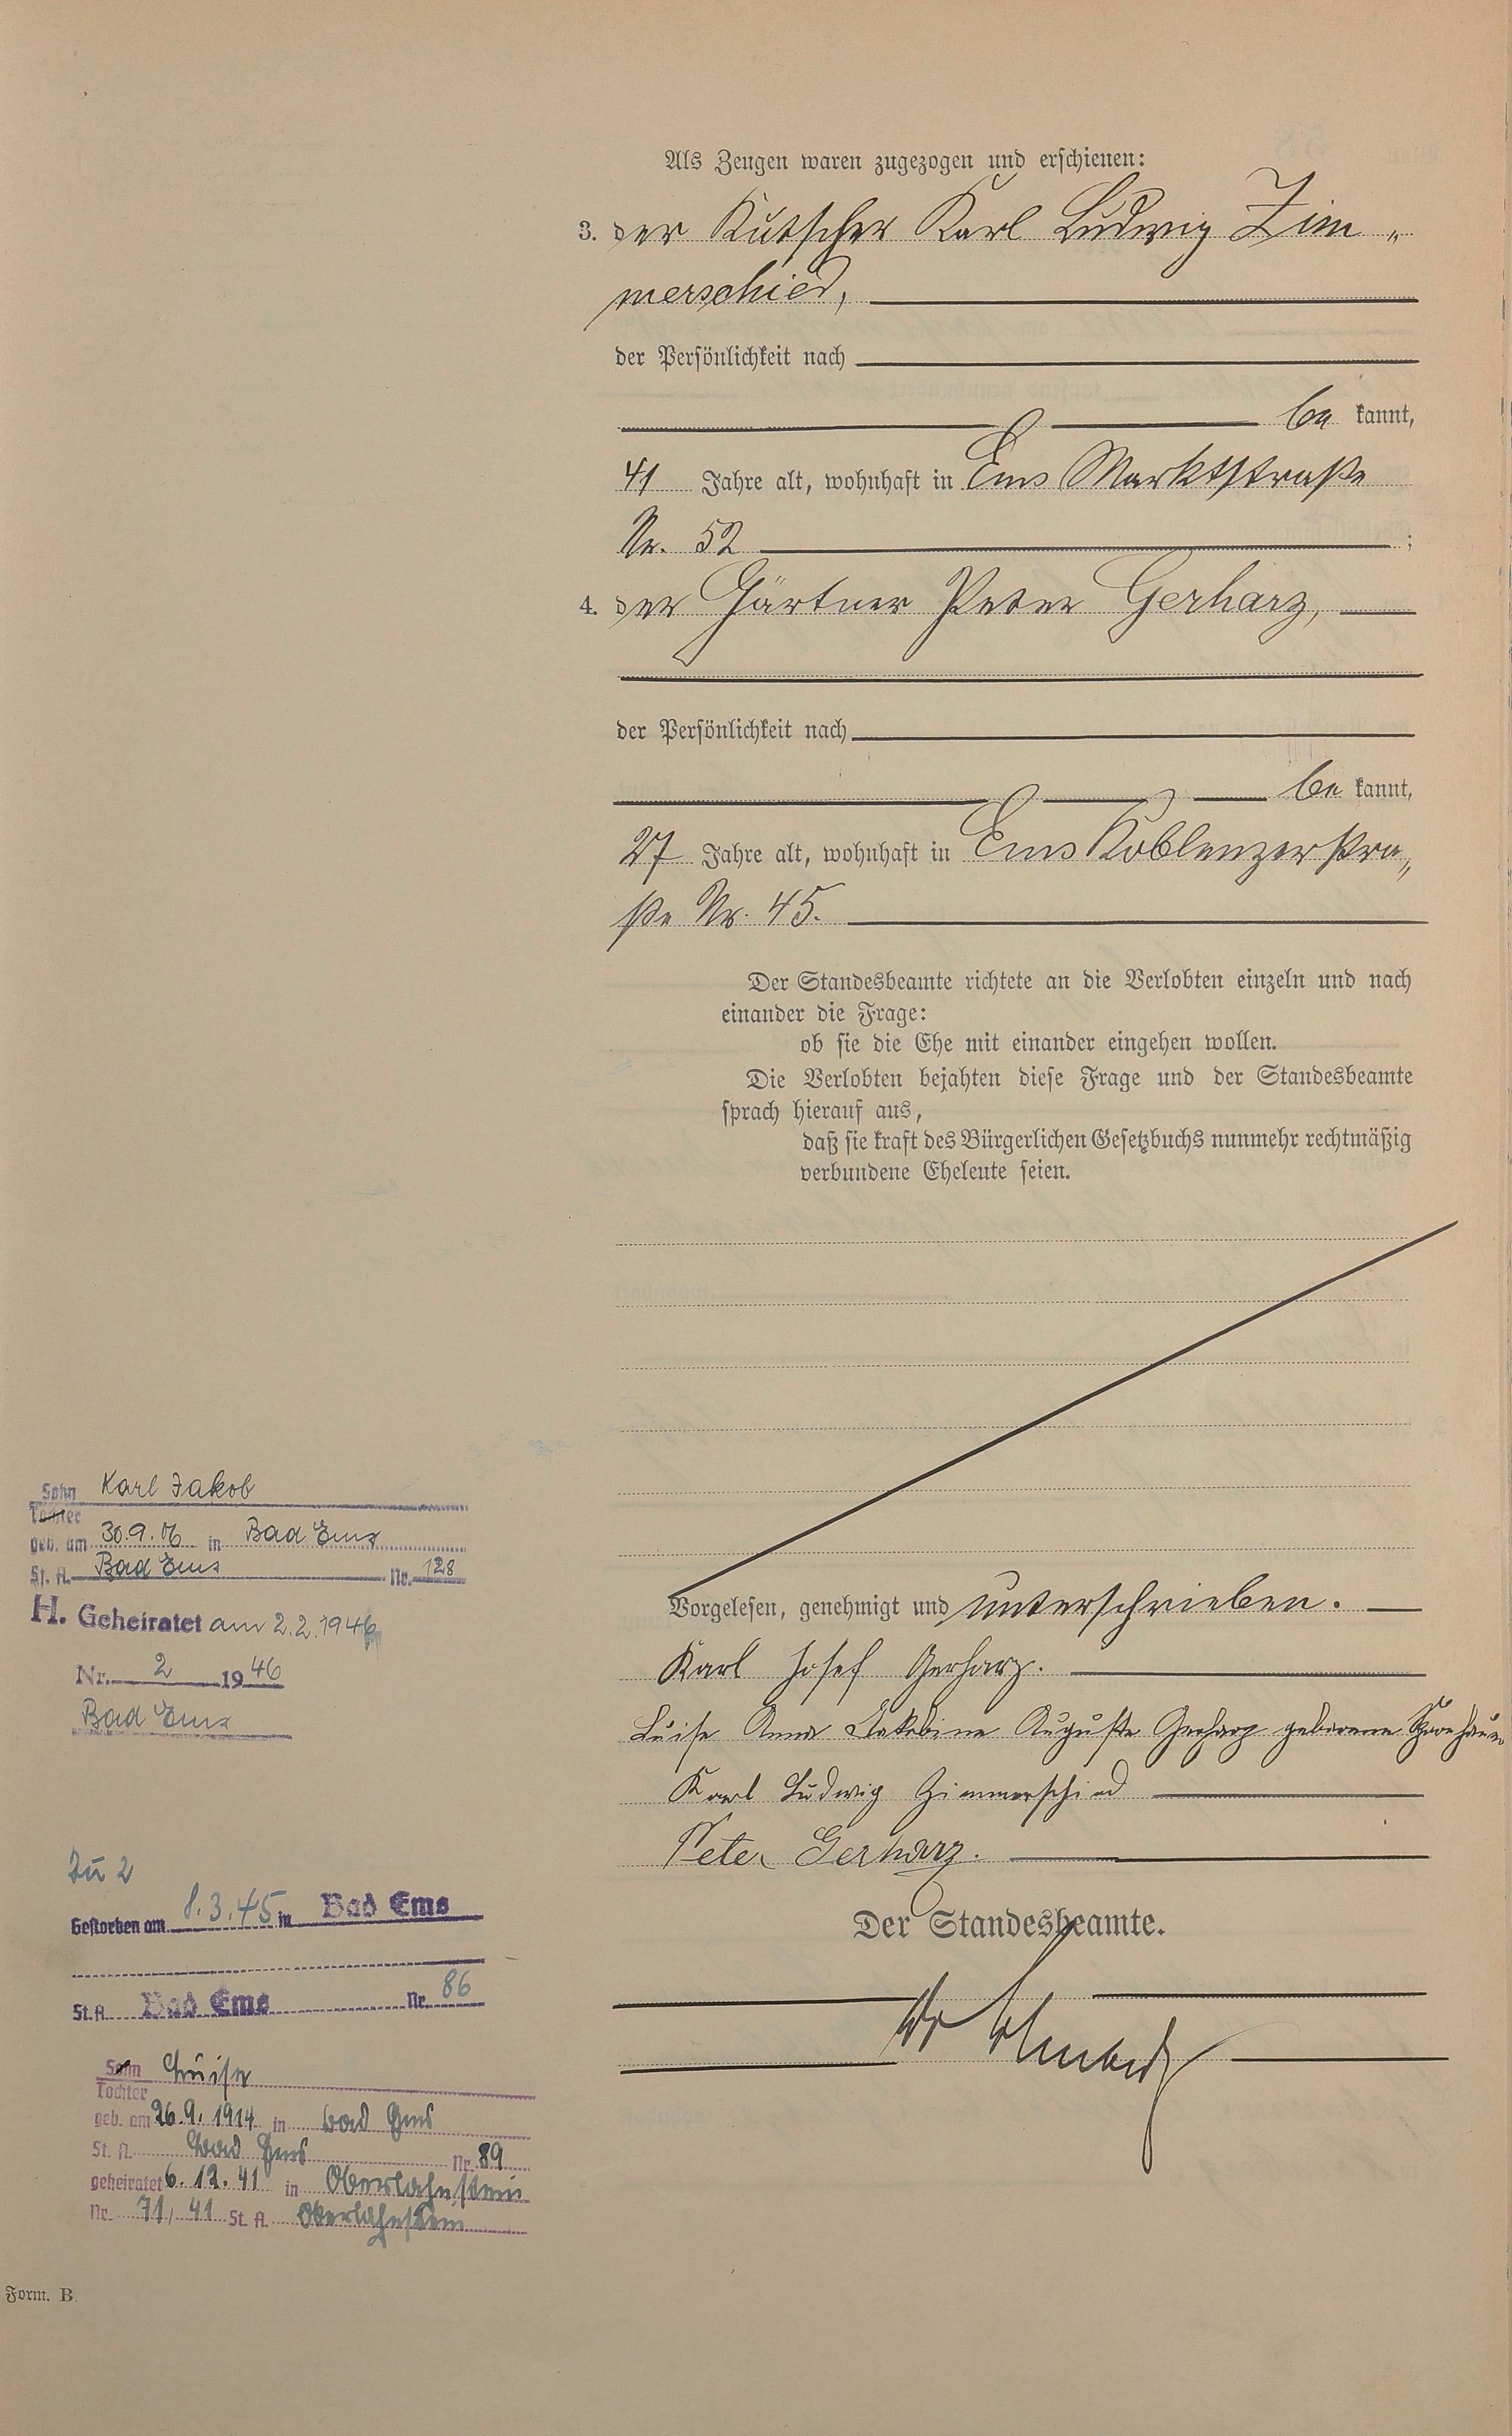 Als Zeugen waren zugezogen und erschienen:
3. der Kutscher Karl Ludwig Zim„
merschied,
der Persönlichkeit nach
be kannt,
41 Jahre alt, wohnhaft in Ems Marktstraße
Nr. 52 ;
4. der Gärtner Peter Gerharz,
der Persönlichkeit nach
be kannt,
27 Jahre alt, wohnhaft in Ems Koblenzerstra„
ße Nr. 45.
Der Standesbeamte richtete an die Verlobten einzeln und nach
einander die Frage:
ob sie die Ehe mit einander eingehen wollen.
Die Verlobten bejahten diese Frage und der Standesbeamte
sprach hierauf aus,
daß sie kraft des Bürgerlichen Gesetzbuchs nunmehr rechtmäßig
verbundene Eheleute seien.
Vorgelesen, genehmigt und unterschrieben.
Karl Josef Gerharz.
Luise Anna Jakobine Auguste Gerharz geborene
Karl Ludwig Zimmerschied
Peter Gerharz.
Der Standesbeamte.
Sohn Karl Jakob
Tochter
geb. am 30.9.06 in Bad Ems
St. A. Bad Ems Nr. 128
H. Geheiratet am 2.2.1946
Nr. 2 1946
Bad Ems
Zu 2
Gestorben am 8.3.45 in Bad Ems
St. A. Bad Ems Nr. 86
Sohn Luise
Tochter
geb. am 26.9.1914 in Bad Ems
St. A. Bad Ems Nr. 89
geheiratet 6.12.41 in Oberlahnstein
Nr. 71/41 St. A. Oberlahnstein
Form. B.